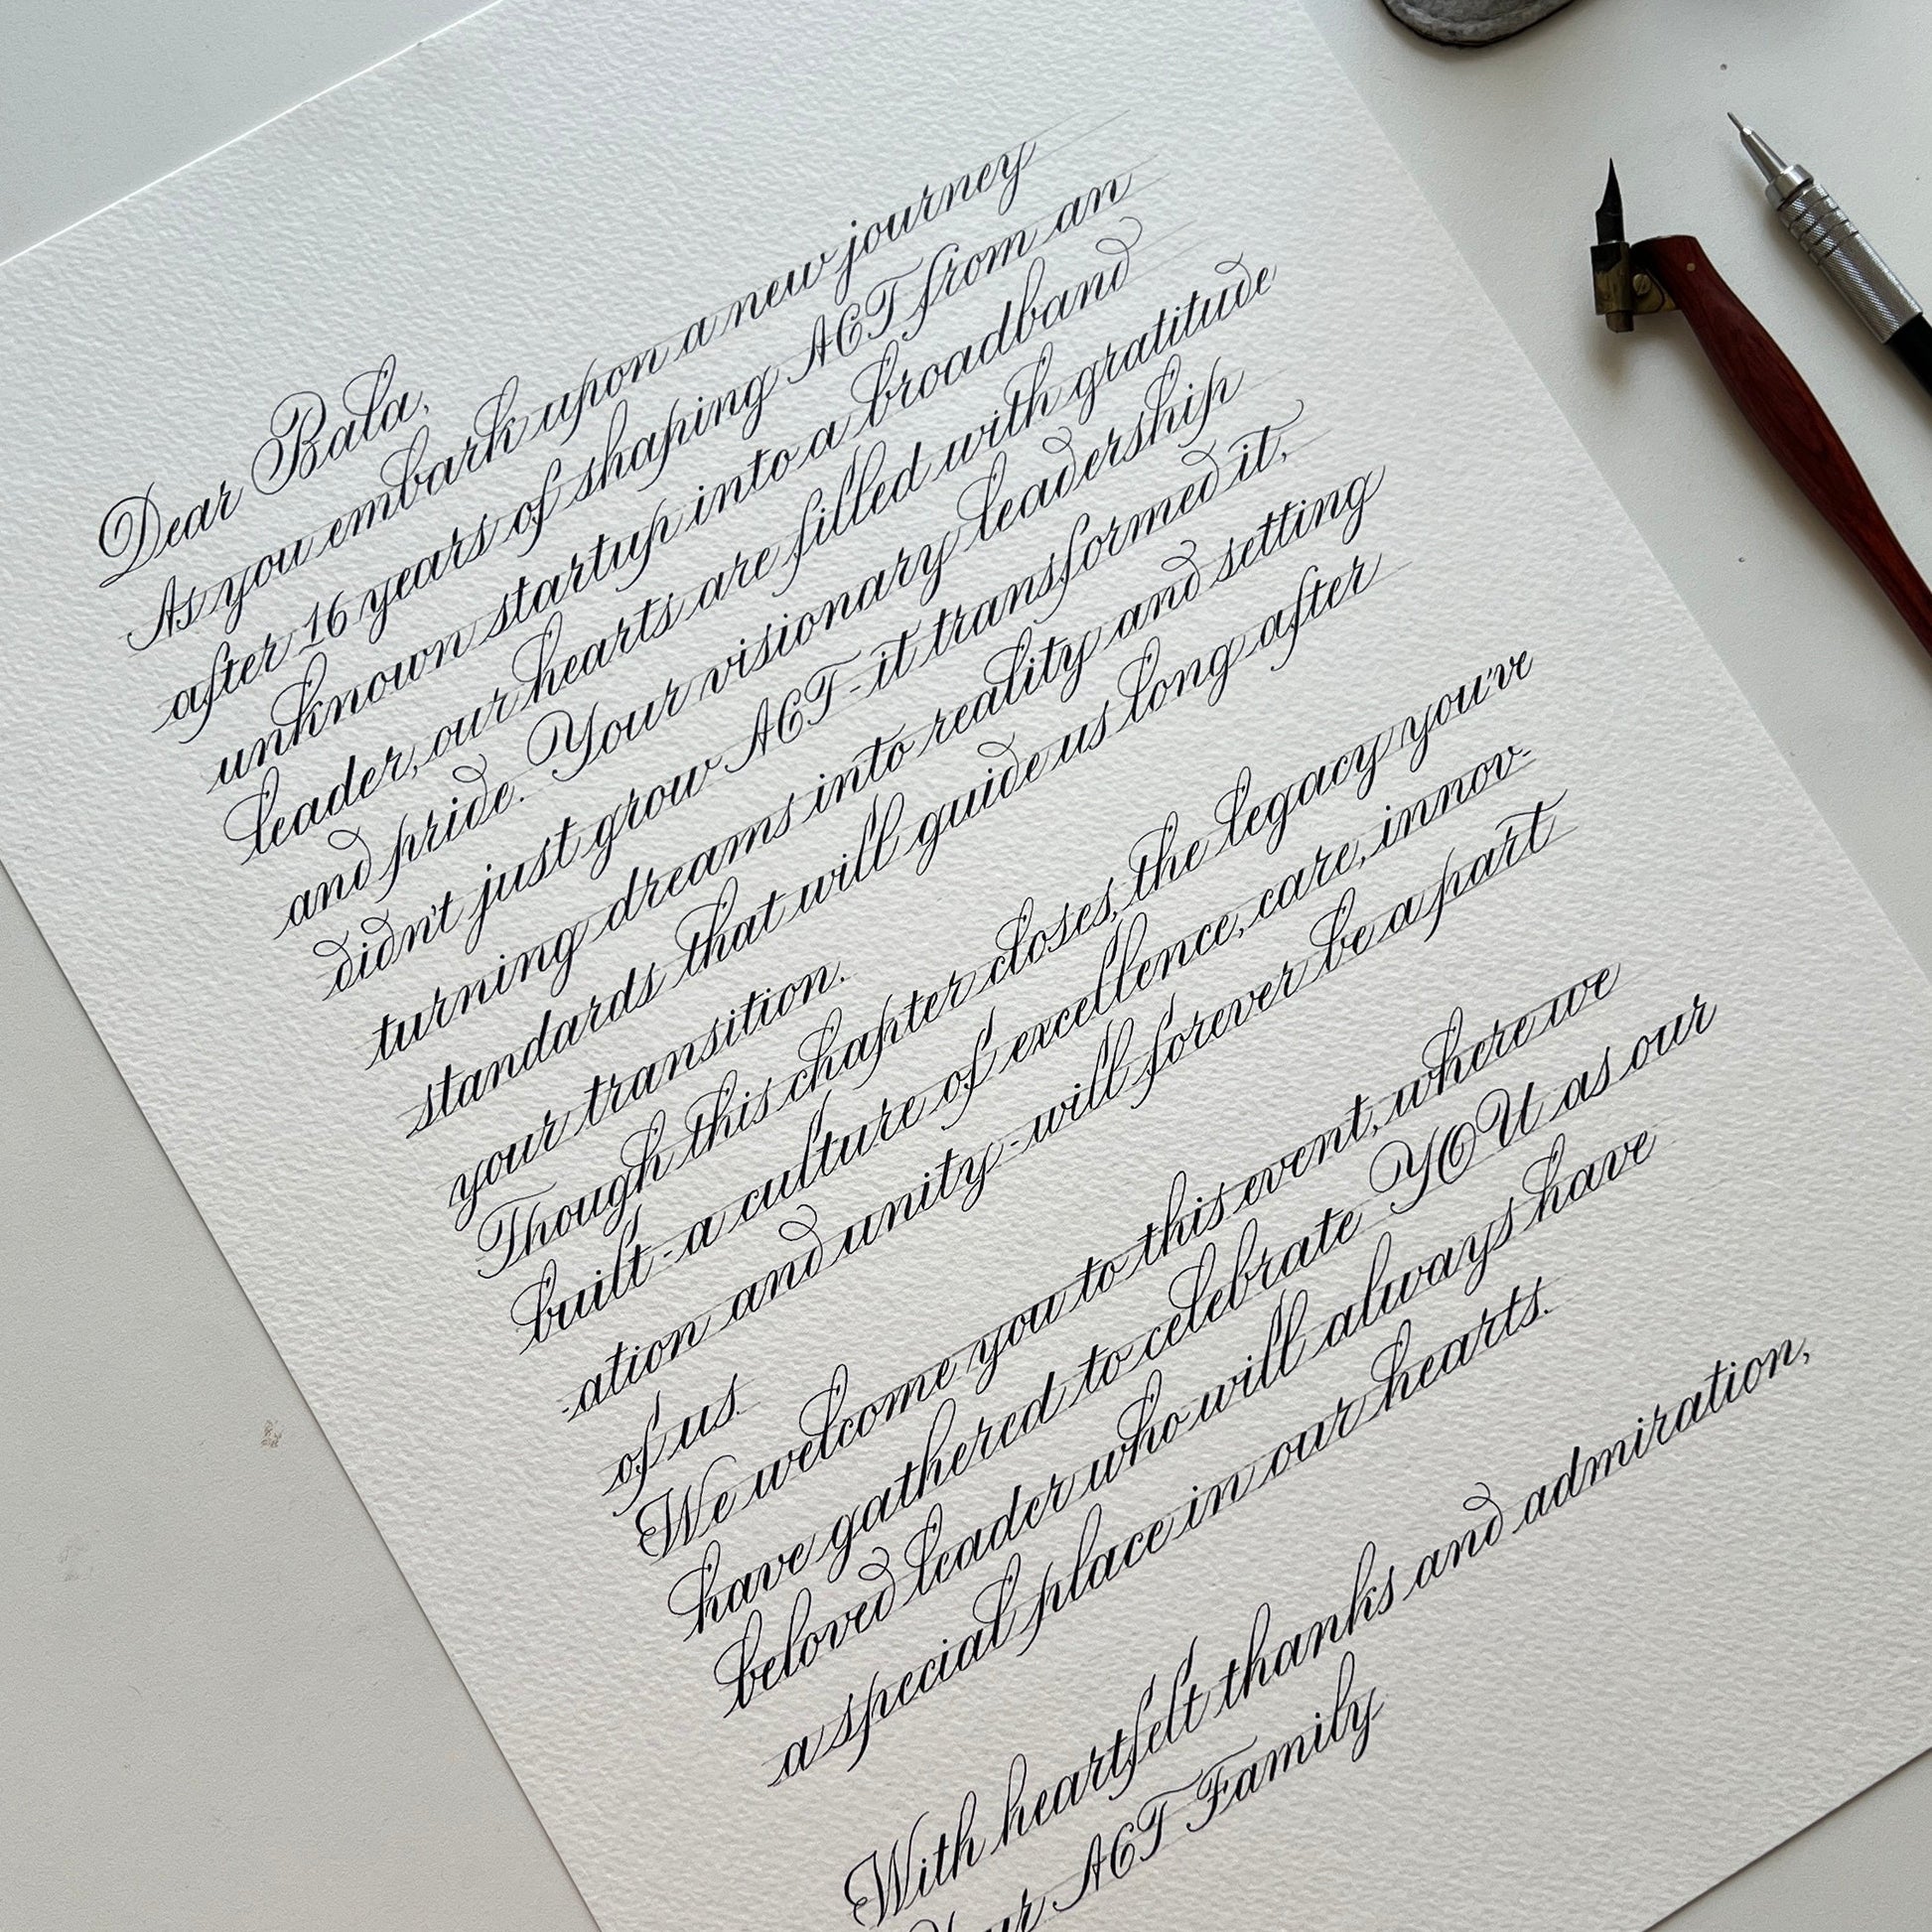 Dear Bala,
As you embark upon a new journey
after 16 years of shaping ACT from an
unknown startup into a broadband
leader, our hearts are filled with gratitude
and pride. Your visionary leadership
didn't just grow ACT - it transformed it,
turning dreams into reality and setting
standards that will guide us long after
your transition.
Though this chapter closes, the legacy you've
built - a culture of excellence, care, innov-
-ation and unity - will forever be a part
of us.
We welcome you to this event, where we
have gathered to celebrate YOU as our
beloved leader who will always have
a special place in our hearts.
With heartfelt thanks and admiration,
Your ACT Family